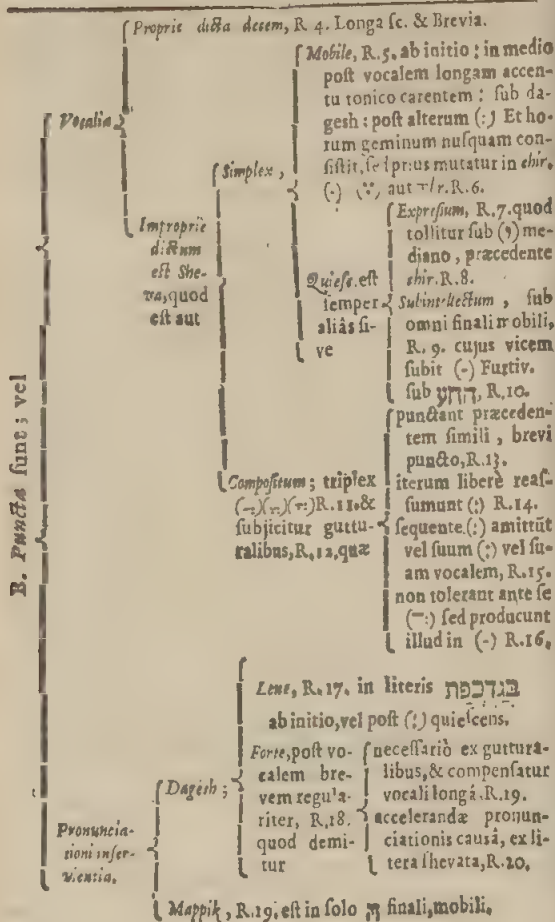 B. Puncta sunt; vel
Vocalia
Proprie dicta decem, R 4. Longa sc. & Brevia.
Improprie
dictum
est She-
va, quod
est aut
Simplex,
Mobile, R.5. ab initio: in medio
post vocalem longam accen-
tu tonico carentem: sub da-
gesh: post alterum (:) Et ho-
rum geminum nusquam con-
sistit, sed prius mutatur in chir.
(.) (∵) aut R.6.
Quiesc. est
semper
aliâs si-
ve
Expressum, R.7. quod
tollitur sub (י) me-
diano, præcedente
chir. R.8.
Subintellectum, sub
omni finali mobili,
R. 9. cujus vicem
subit (-) Furtiv.
sub ההע, R,10.
Compositum; triplex
(-:)(..:)(т:)R.11.&
subjicitur guttu-
ralibus, R,12,quæ
punctant præceden-
tem simili, brevi
puncto, R.13.
iterum liberè reas-
sumunt (:) R.14.
sequente (:) amittũt
vel suum (:) vel su-
am vocalem, R.15.
non tolerant ante se
(-:) sed producunt
illud in (-) R.16.
Pronuncia-
tioni inser-
vientia.
Dagesh;
Lene, R.17. in literis בגדכפת
ab initio, vel post (:) quiescens.
Forte, post vo-
calem bre-
vem regula-
riter, R,18.
quod demi-
tur
necessariò ex guttura-
libus, & compensatur
vocali longâ. R.19.
accelerandæ pronun-
ciationis causâ, ex li-
tera shevata, R.20.
Mappik, R.19. est in solo ה finali, mobili.